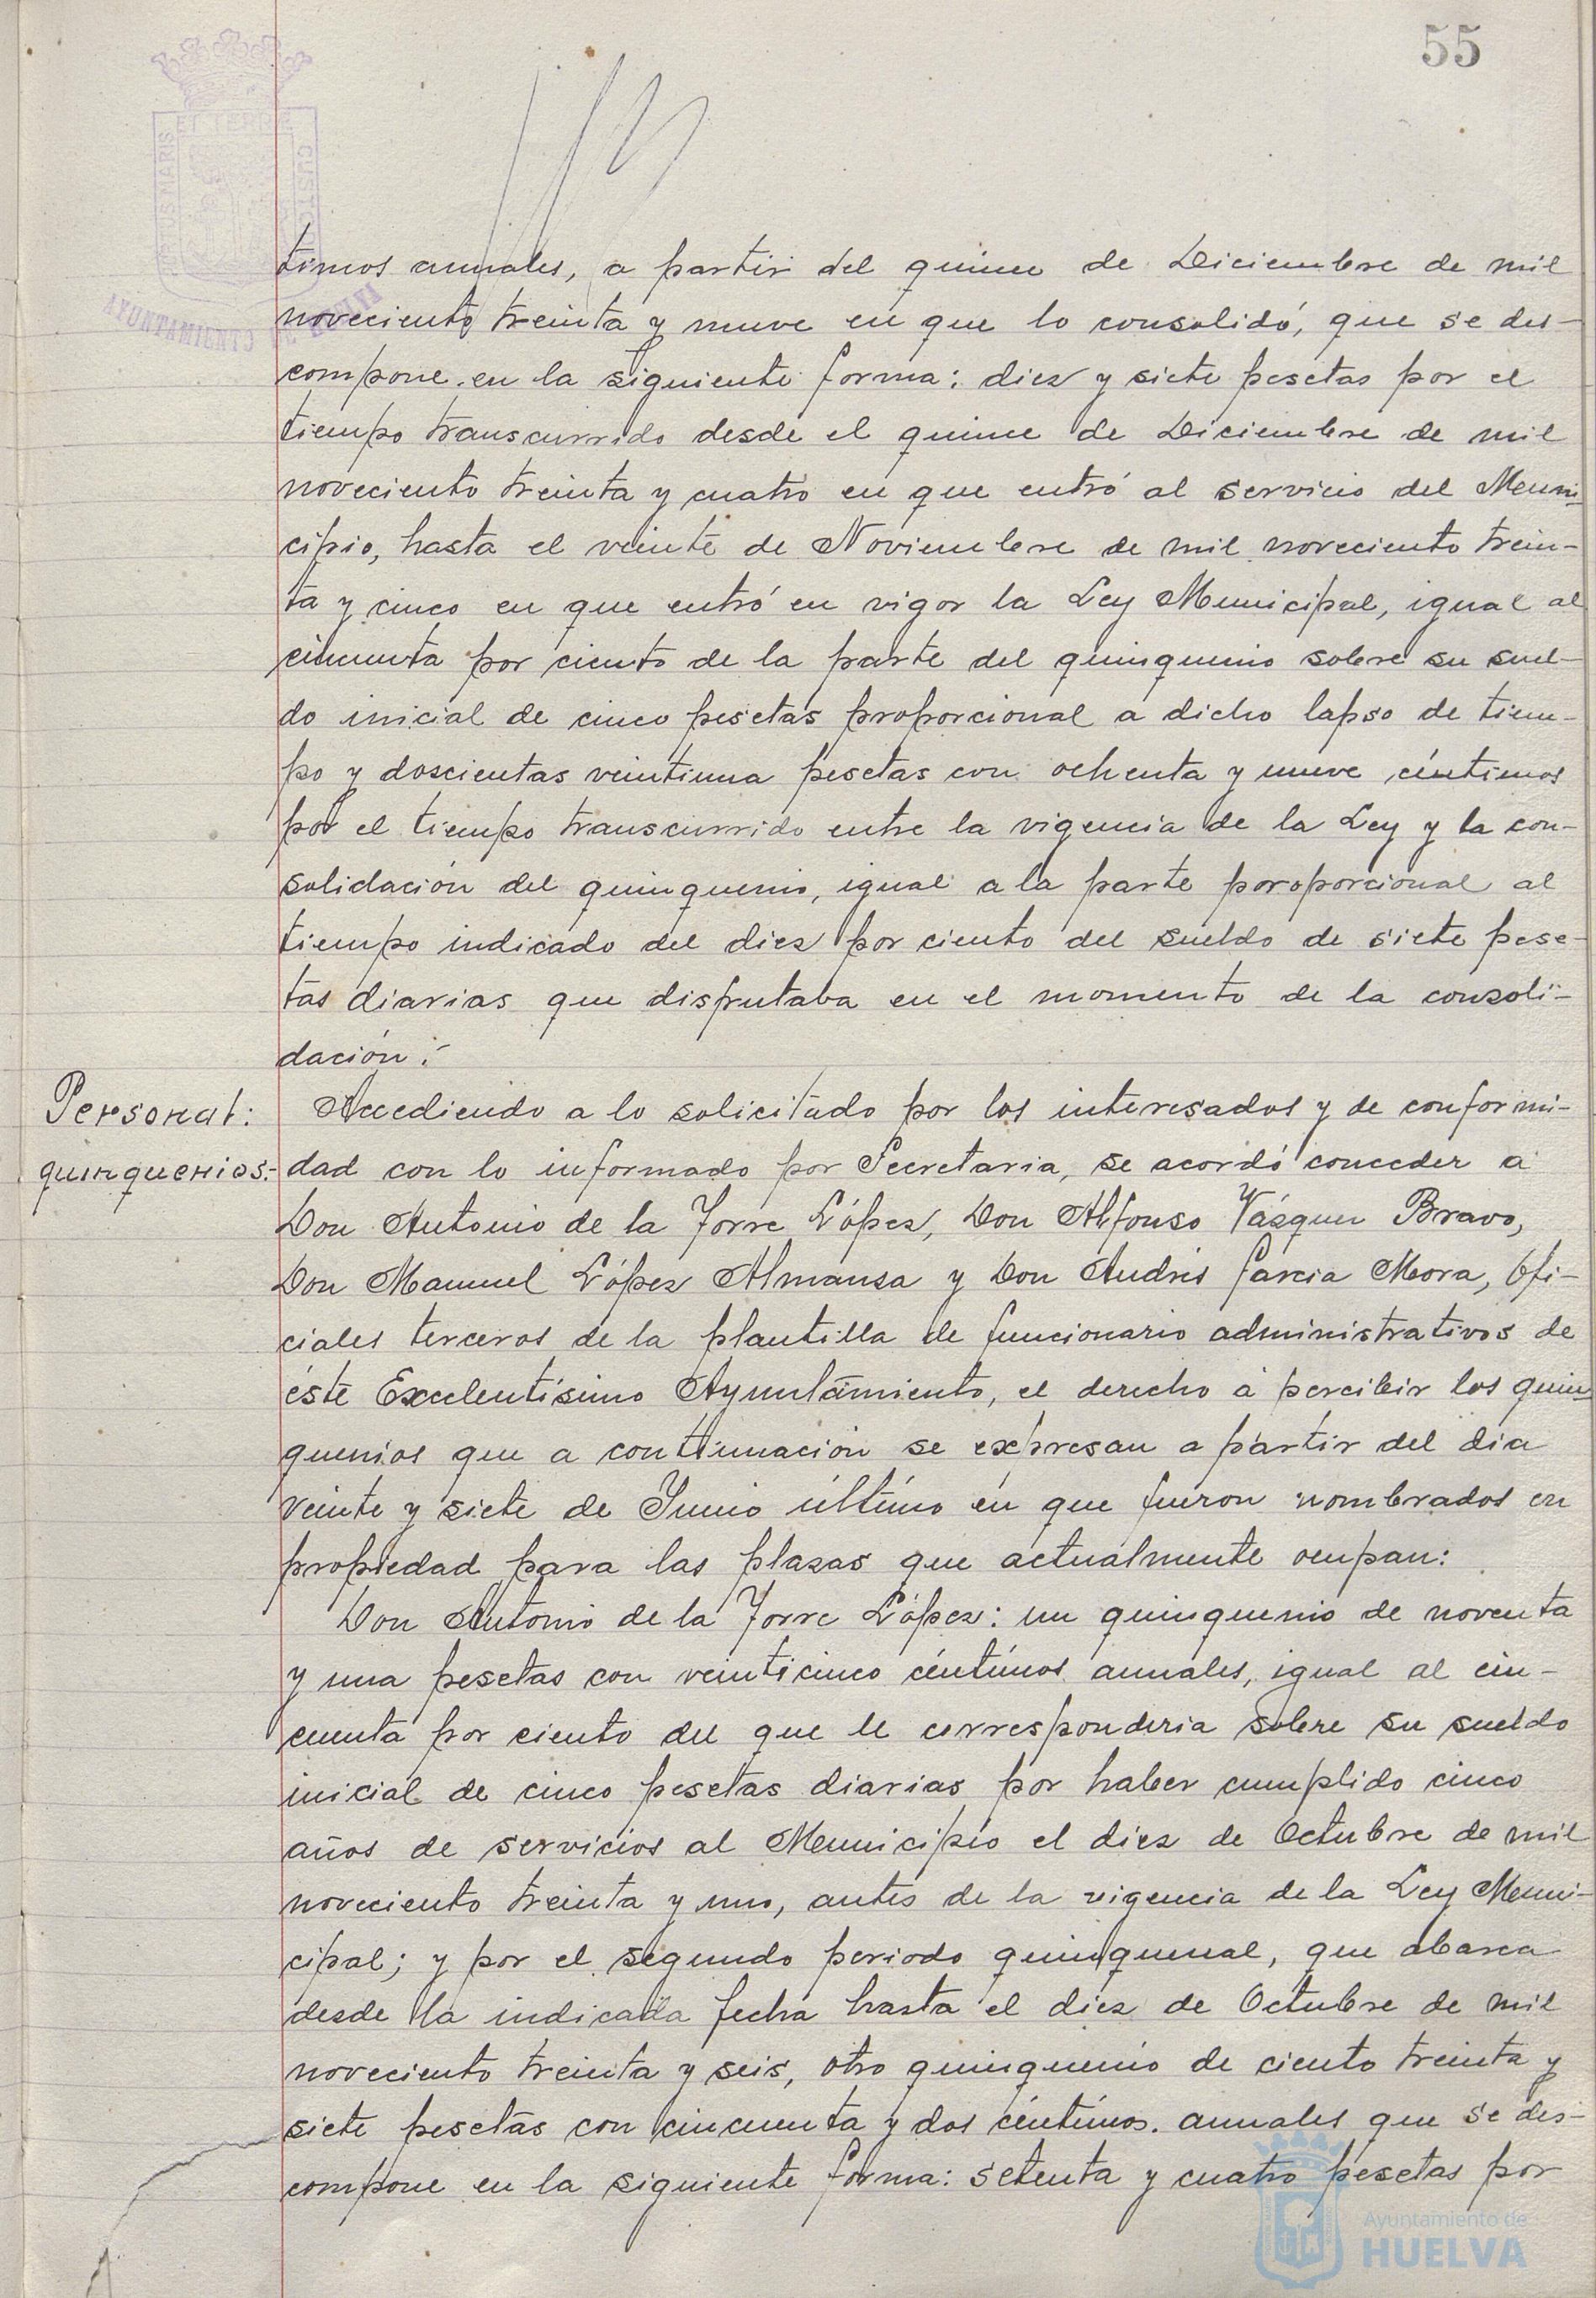 55
PORTUS MARIS ET TERRE CUSTODIA
AYUNTAMIENTO DE HUELVA
timos anuales, a partir del quince de Diciembre de mil
noveciento treinta y nueve en que lo consolidó, que se des-
compone en la siguiente forma: diez y siete pesetas por el
tiempo transcurrido desde el quince de Diciembre de mil
noveciento treinta y cuatro en que entró al servicio del Muni-
cipio, hasta el veinte de Noviembre de mil noveciento trein-
ta y cinco en que entró en vigor la Ley Municipal, igual al
cincuenta por ciento de la parte del quinquenio sobre su suel-
do inicial de cinco pesetas proporcional a dicho lapso de tiem-
po y doscientas veintiuna pesetas con ochenta y nueve céntimos
por el tiempo transcurrido entre la vigencia de la Ley y la con-
solidación del quinquenio, igual a la parte poroporcional al
tiempo indicado del diez por ciento del sueldo de siete pese-
tas diarias que disfrutaba en el momento de la consoli-
dación.-
Personal:
quinquenios.-
Accediendo a lo solicitado por los interesados y de conformi-
dad con lo informado por Secretaria, se acordó conceder a
Don Antonio de la Torre López, Don Alfonso Vázquez Bravo,
Don Manuel López Almansa y Don Andrés Garcia Mora, Ofi-
ciales terceros de la plantilla de funcionario administrativos de
éste Excelentísimo Ayuntamiento, el derecho a percibir los quin-
quenios que a continuación se expresan a partir del dia
veinte y siete de Junio último en que fueron nombrados en
propiedad para las plazas que actualmente ocupan:
Don Antonio de la Torre López: un quinquenio de noventa
y una pesetas con veinticinco céntimos anuales, igual al cin-
cuenta por ciento del que le corresponderia sobre su sueldo
inicial de cinco pesetas diarias por haber cumplido cinco
años de servicios al Municipio el diez de Octubre de mil
noveciento treinta y uno, antes de la vigencia de la Ley Muni-
cipal; y por el segundo periodo quinquenal, que abarca
desde la indicada fecha hasta el diez de Octubre de mil
noveciento treinta y seis, otro quinquenio de ciento treinta y
siete pesetas con cincuenta y dos céntimos. anuales que se des-
compone en la siguiente forma: setenta y cuatro pesetas por
Ayuntamiento de
HUELVA